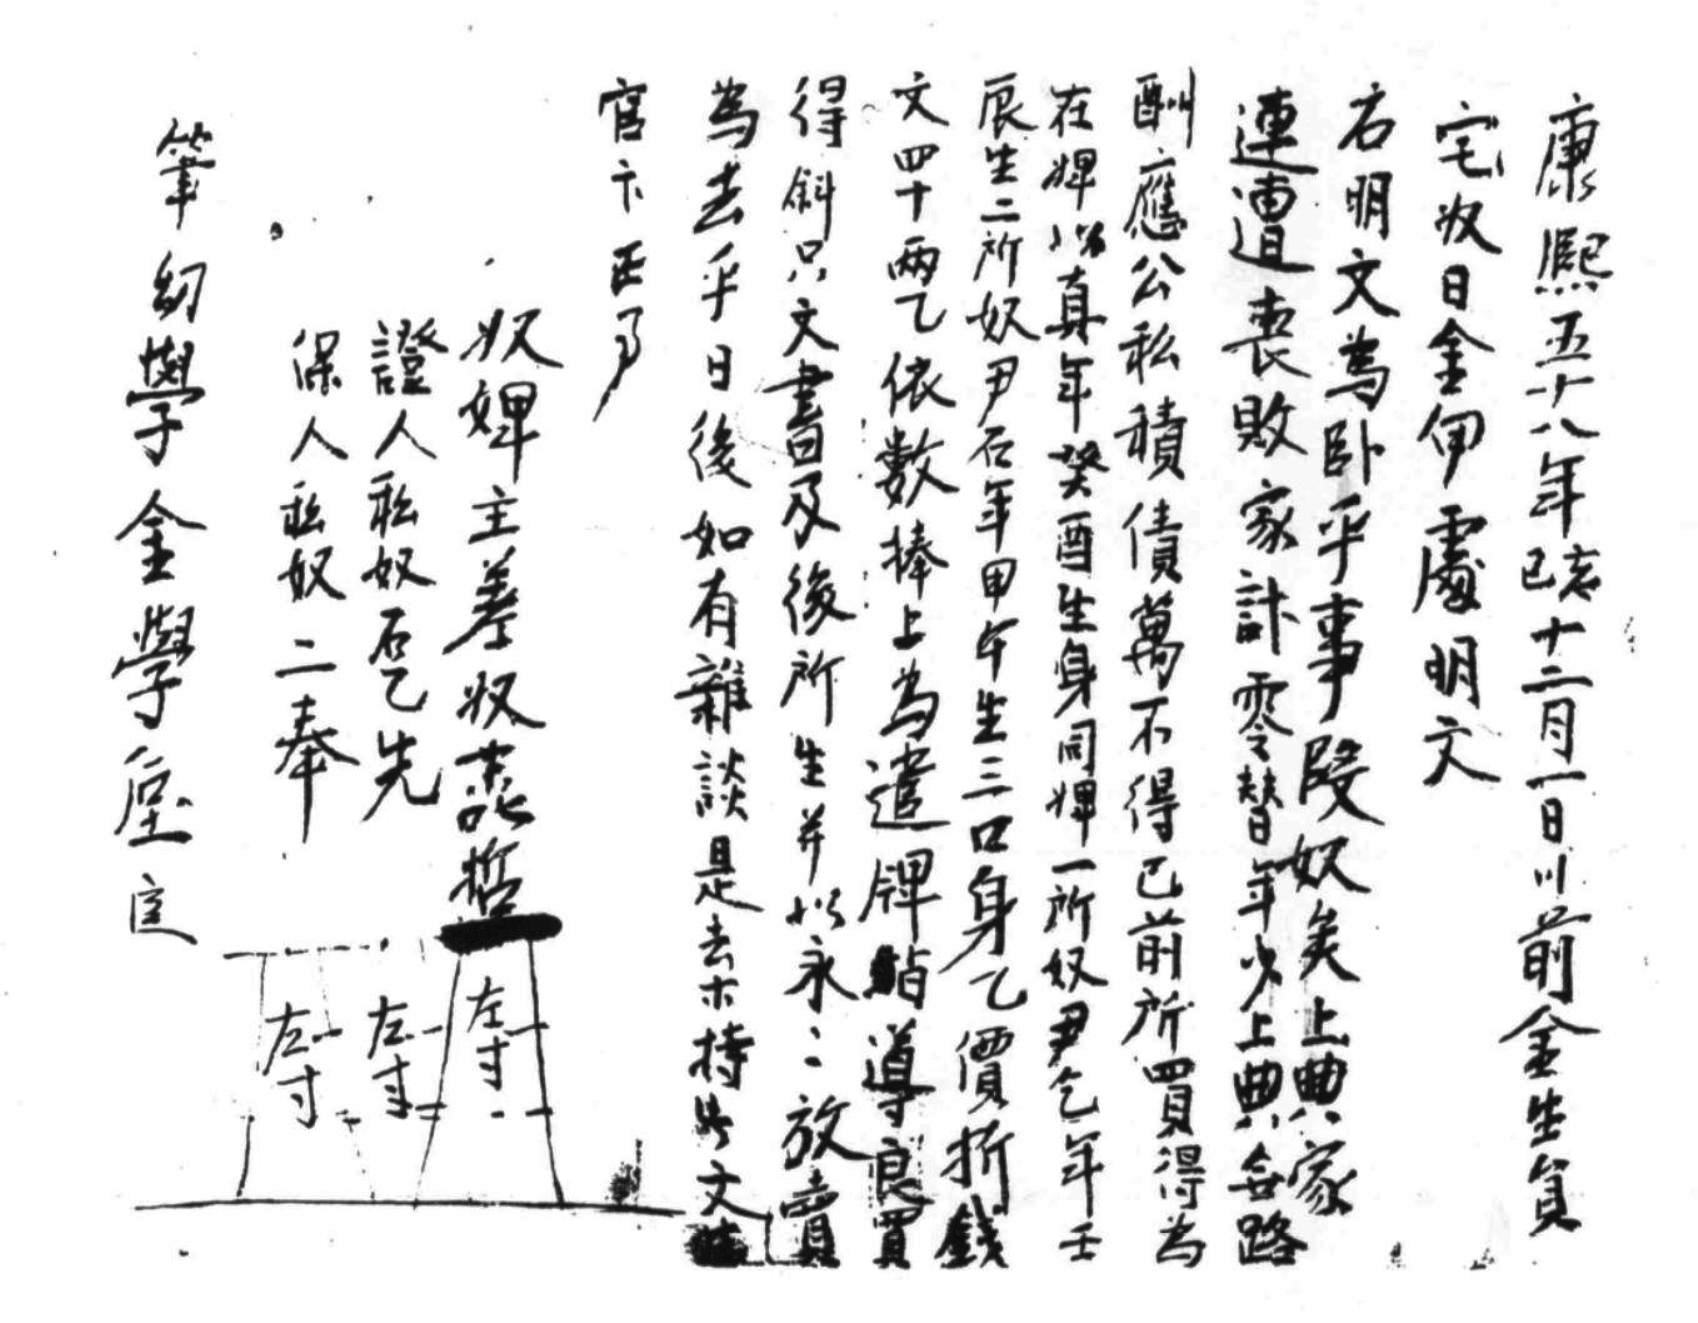 康熙五十八年己亥十二月一日 前金生員
宅奴日金伊處明文
右明文爲臥乎事段奴矣上典家
連遭喪敗家計零替年少上典無路
酬應公私積債萬不得已前所買得爲
在婢 眞年癸酉生身同婢一所奴尹乞年壬
辰生二所奴尹石年甲午生三口身乙價折錢
文四十兩乙依數捧上爲遣 導良買
得斜只文書及後所生幷以永永放賣
爲去乎日後如有雜談是去等持此文
官卞正事
奴婢主差奴 哲 左寸
證人私奴石乙先 左寸
保人私奴二奉 左寸
筆幼學金學